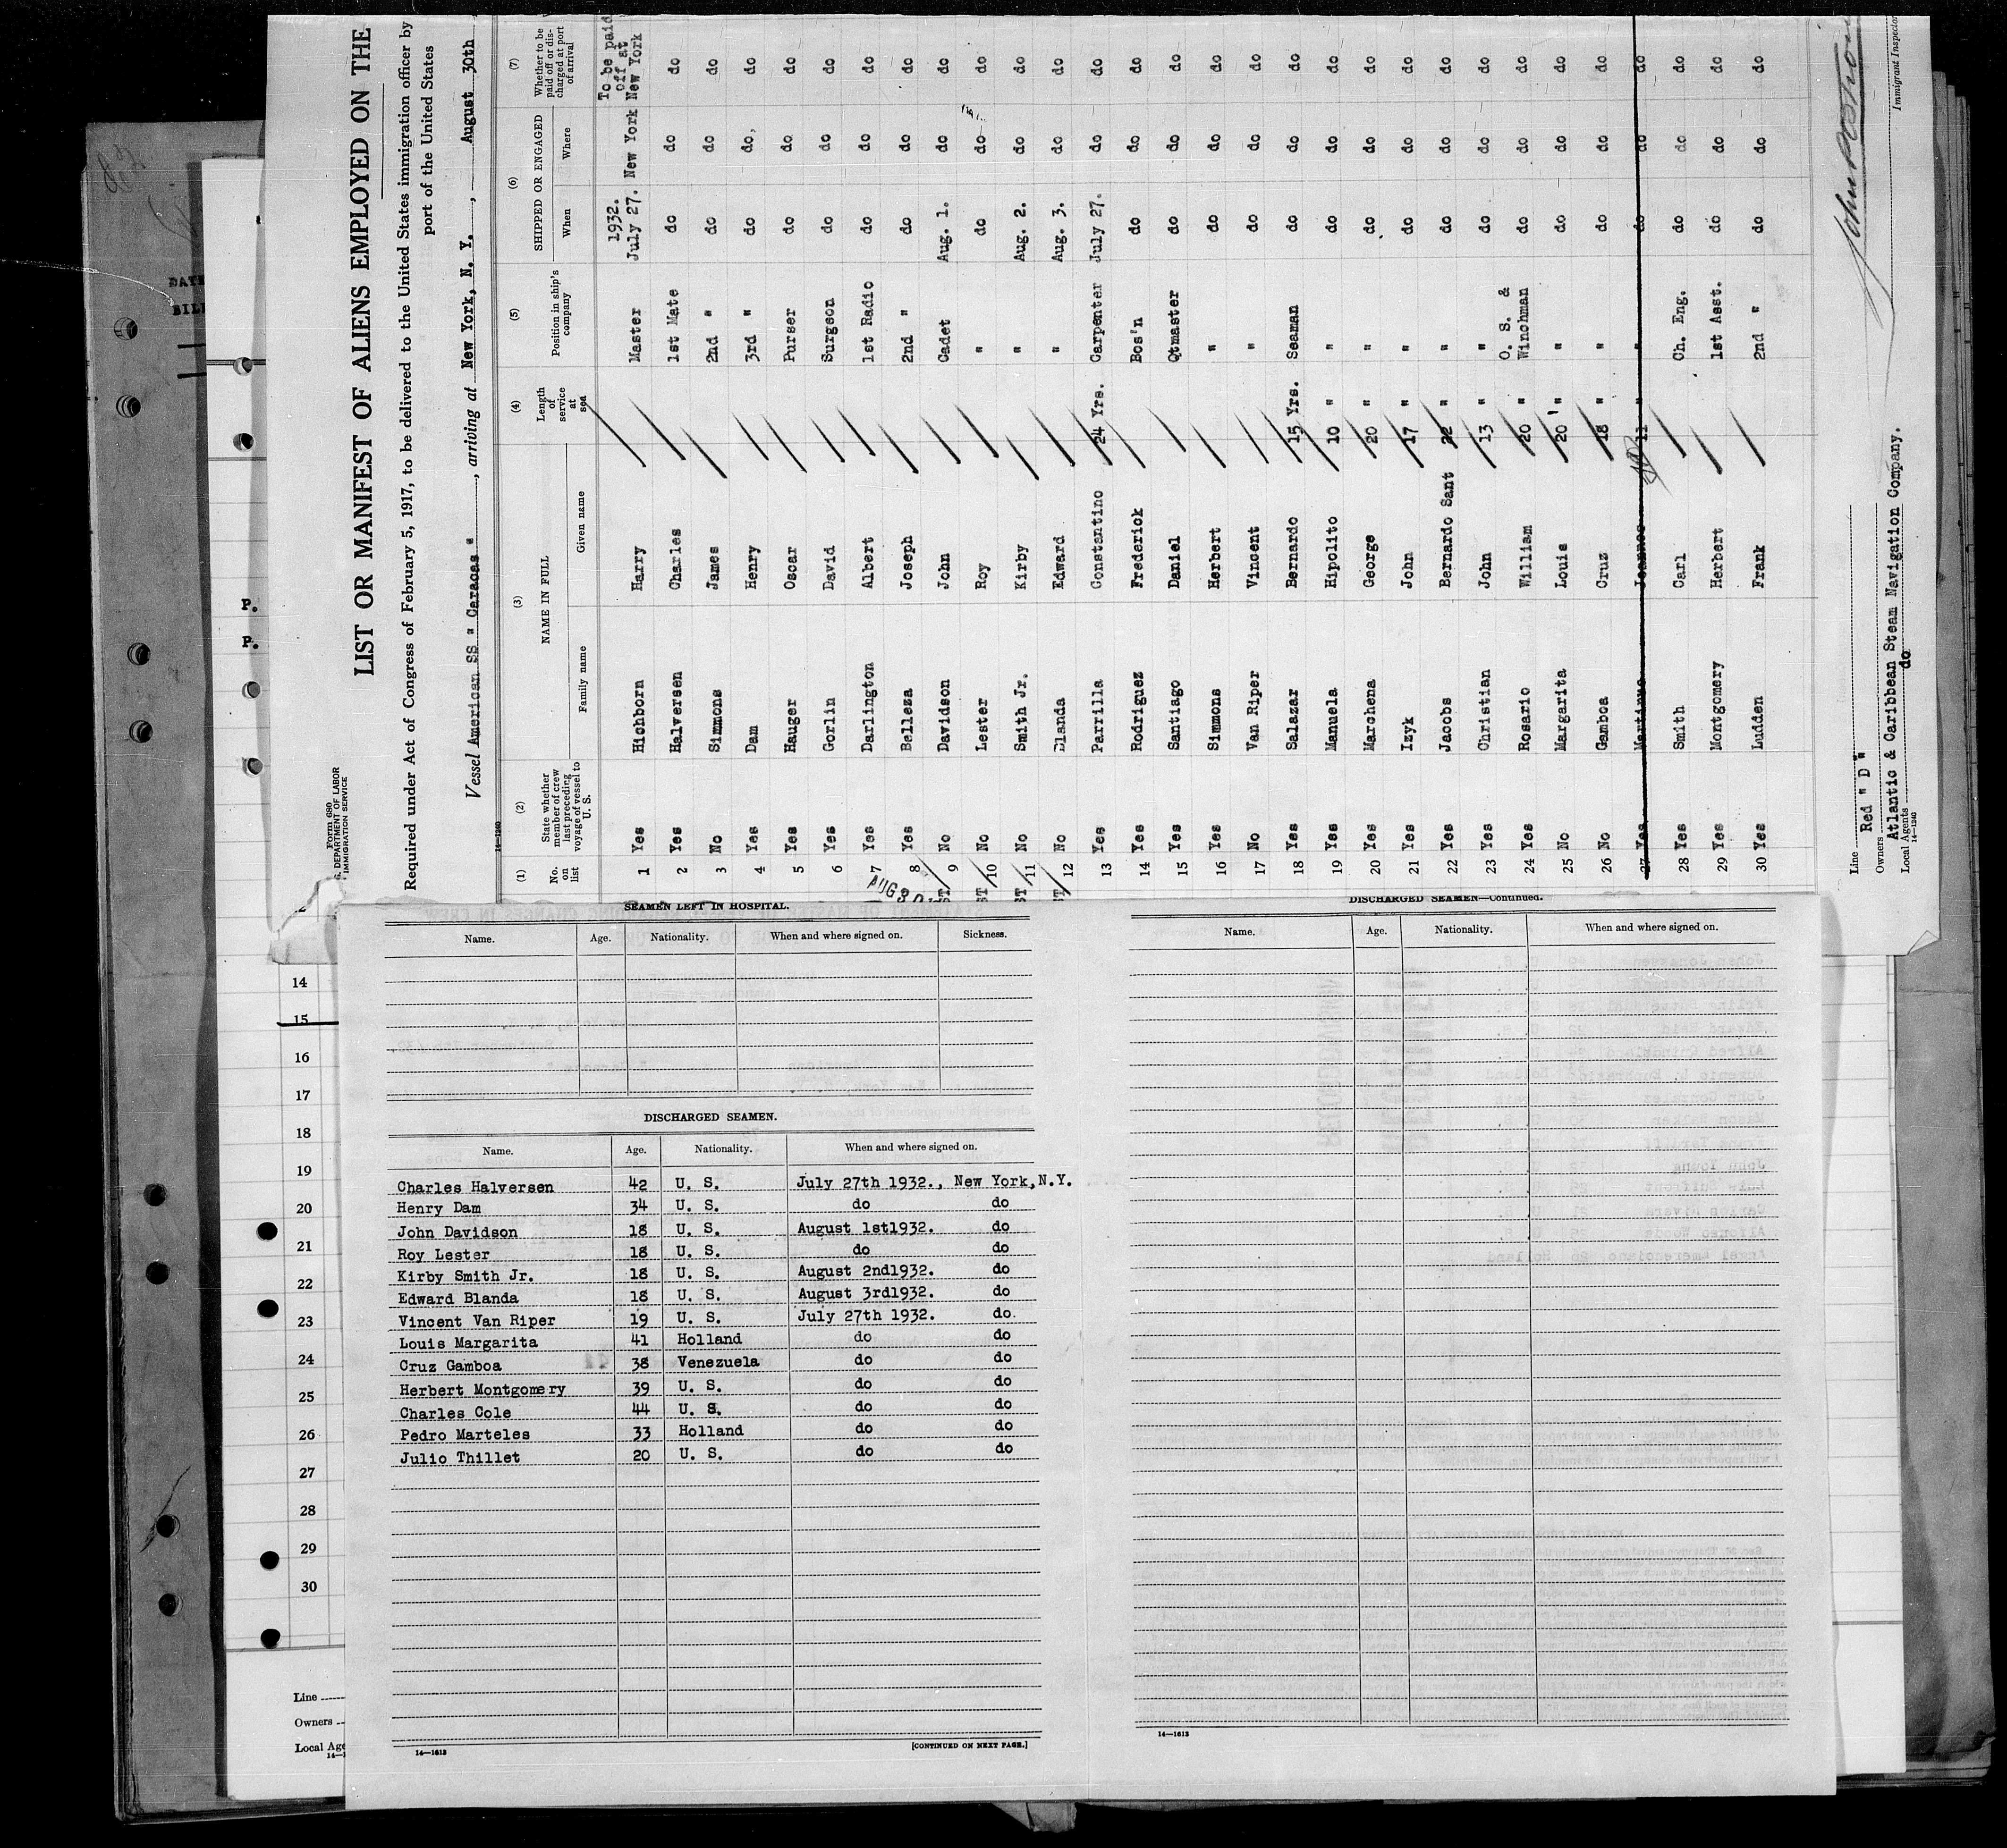 Form 680
DEPARTMENT OF LABOR
IMMIGRATION SERVICE
LIST OR MANIFEST OF ALIENS EMPLOYED ON THE
Required under Act of Congress of February 5, 1917, to be delivered to the United States immigration officer by
port of the United States
Vessel American SS " Caracas ", arriving at New York, N. Y., August 30th
14-1240
(1) (2) (3) (4) (5) (6) (7)
No. on list
State whether member of crew last preceding voyage of vessel to U. S.
NAME IN FULL
Family name Given name
Length of service at sea
Position in ship's company
SHIPPED OR ENGAGED
When Where
Whether to be paid off or discharged at port of arrival
1 Yes Hichborn Harry Master 1932. July 27. New York To be paid off at New York
2 Yes Halversen Charles 1st Mate do do do
3 No Simmons James 2nd " do do do
4 Yes Dam Henry 3rd " do do, do
5 Yes Hauger Oscar Purser do do do
6 Yes Gorlin David Surgeon do do do
7 Yes Darlington Albert 1st Radio do do do
8 Yes Belleza Joseph 2nd " do do do
9 No Davidson John Cadet Aug. 1. do do
10 No Lester Roy " do do do
11 No Smith Jr. Kirby " Aug. 2. do do
12 No Blanda Edward " Aug. 3. do do
13 Yes Parrilla Constantino 24 Yrs. Carpenter July 27. do do
14 Yes Rodriguez Frederick Bos'n do do do
15 Yes Santiago Daniel Qtmaster do do do
16 Yes Simmons Herbert " do do do
17 No Van Riper Vincent " do do do
18 Yes Salazar Bernardo 15 Yrs. Seaman do do do
19 Yes Manuela Hipolito 10 " " do do do
20 Yes Marchena George 20 " " do do do
21 Yes Izyk John 17 " " do do do
22 Yes Jacobs Bernardo Sant 22 " " do do do
23 Yes Christian John 13 " " do do do
24 Yes Rosario William 20 " O. S. & Winchman do do do
25 No Margarita Louis 20 " " do do do
26 No Gamboa Cruz 18 " " do do do
27 Yes 11 " " do do do
28 Yes Smith Carl Ch. Eng. do do do
29 Yes Montgomery Herbert 1st Asst. do do do
30 Yes Ludden Frank 2nd " do do do
AUG 30
Line Red " D "
Owners Atlantic & Caribbean Steam Navigation Company.
Local Agents do
14-1240
Immigrant Inspector
DATE
BILL
P.
P.
14
15
16
17
18
19
20
21
22
23
24
25
26
27
28
29
30
Line
Owners
Local Age
SEAMEN LEFT IN HOSPITAL.
Name. Age. Nationality. When and where signed on. Sickness.
DISCHARGED SEAMEN.
Name. Age. Nationality. When and where signed on.
Charles Halversen 42 U. S. July 27th 1932., New York,N.Y.
Henry Dam 34 U. S. do do
John Davidson 18 U. S. August 1st1932. do
Roy Lester 18 U. S. do do
Kirby Smith Jr. 18 U. S. August 2nd1932. do
Edward Blanda 18 U. S. August 3rd1932. do
Vincent Van Riper 19 U. S. July 27th 1932. do.
Louis Margarita 41 Holland do do
Cruz Gamboa 38 Venezuela do do
Herbert Montgomery 39 U. S. do do
Charles Cole 44 U. S. do do
Pedro Marteles 33 Holland do do
Julio Thillet 20 U. S. do do
14—1613
[CONTINUED ON NEXT PAGE.]
DISCHARGED SEAMEN—Continued.
Name. Age. Nationality. When and where signed on.
14—1613